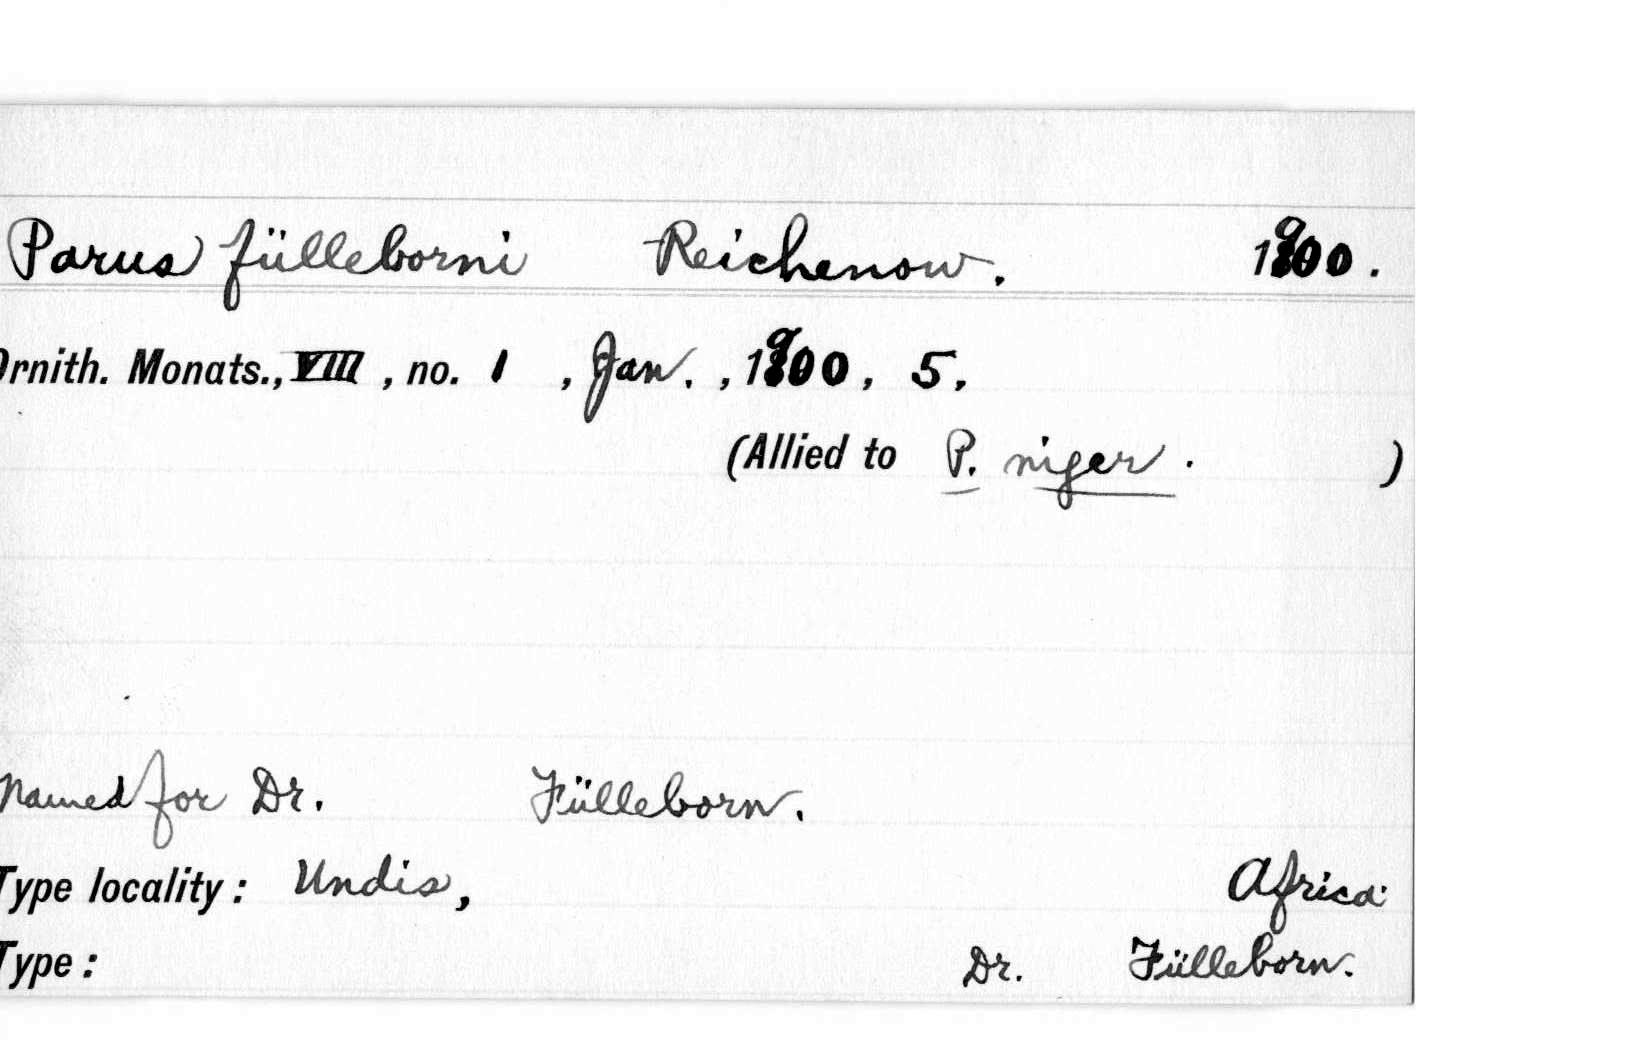 Parus fülleborni Reichenow. 1900.
Ornith. Monats., VIII, no. 1, Jan., 1900, 5.
(Allied to P. niger. )
Named for Dr. Fülleborn.
Type locality: Undis, Africa.
Type: Dr. Fülleborn.